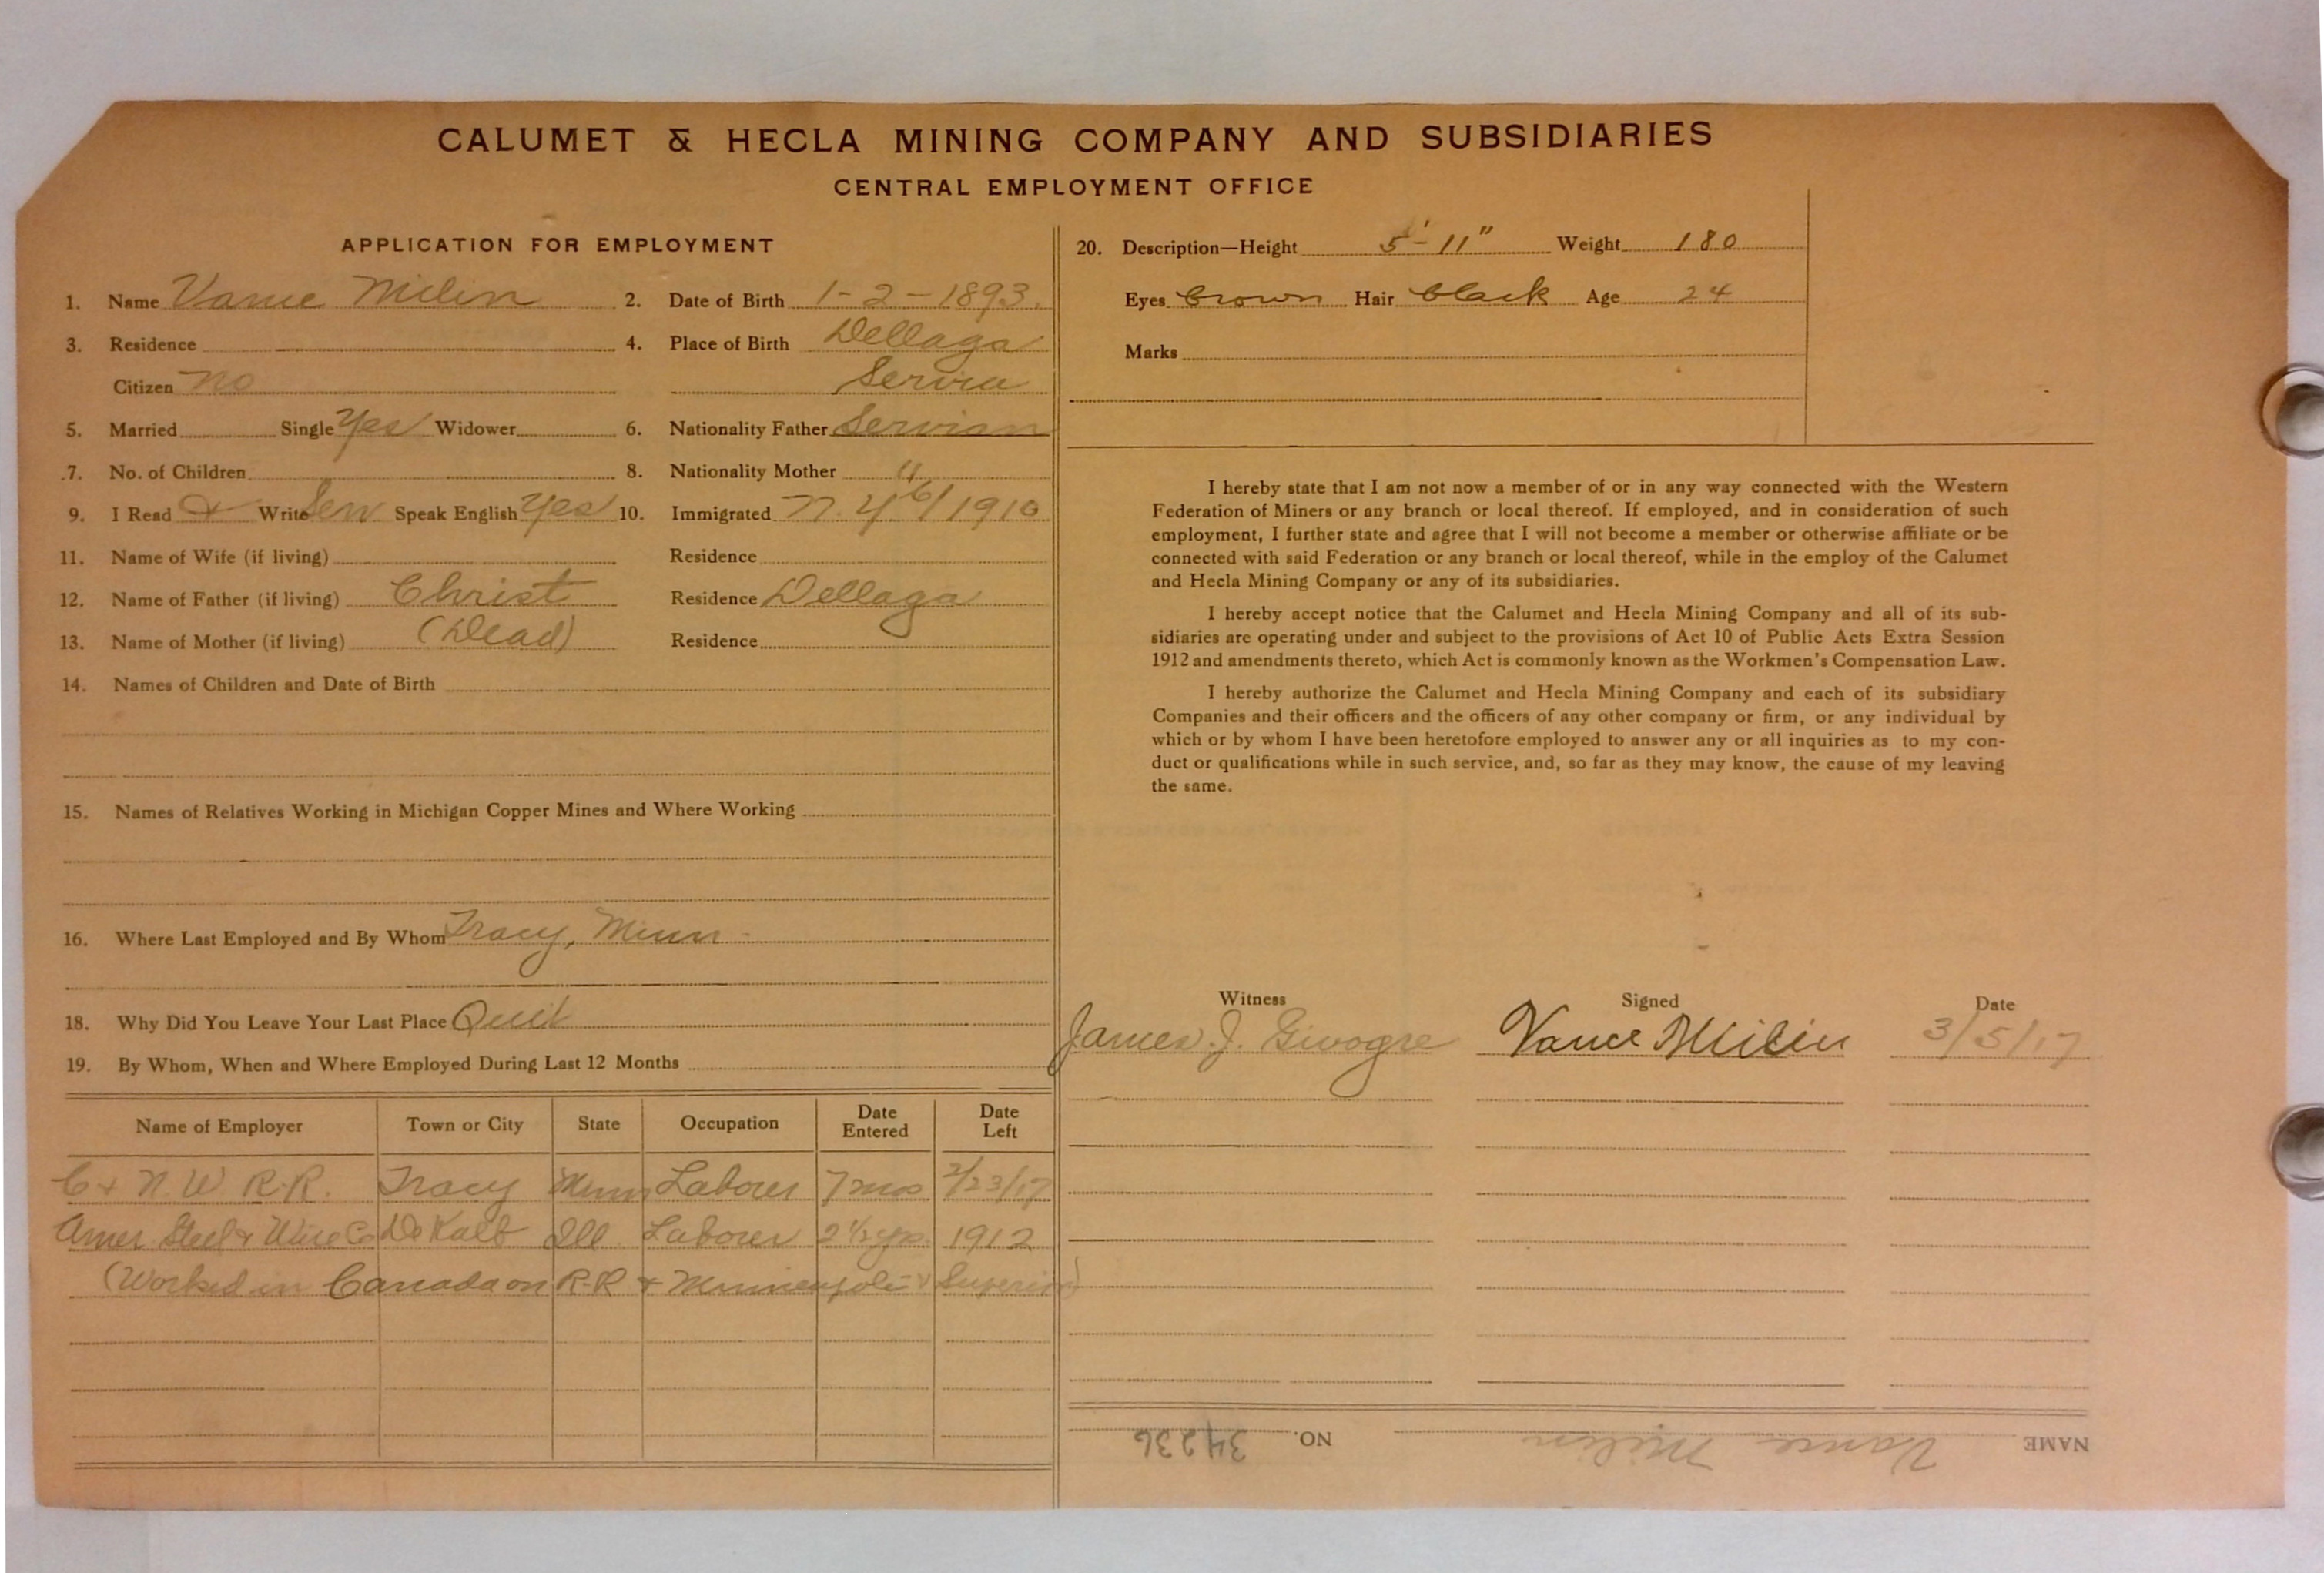 CALUMET & HECLA MINING COMPANY AND SUBSIDIARIES
CENTRAL EMPLOYMENT OFFICE
APPLICATION FOR EMPLOYMENT
1. Name Vance Milin 2. Date of Birth 1-2-1893.
3. Residence 4. Place of Birth Dellaga
Citizen no Servia
5. Married Single Yes Widower 6. Nationality Father Servian
7. No. of Children 8. Nationality Mother "
9. I Read & Write Serv Speak English Yes 10. Immigrated N.Y 6/1910
11. Name of Wife (if living) Residence
12. Name of Father (if living) Christ Residence Dellaga
13. Name of Mother (if living) (Dead) Residence
14. Names of Children and Date of Birth
15. Names of Relatives Working in Michigan Copper Mines and Where Working
16. Where Last Employed and By Whom Tracy, Minn
18. Why Did You Leave Your Last Place Quit
19. By Whom, When and Where Employed During Last 12 Months
Name of Employer Town or City State Occupation Date Entered Date Left
C & N.W R.R. Tracy Minn Laborer 7 mos 2/23/17
Amer Steel & Wire Co De Kalb Ill Laborer 2 1/2 yrs. 1912
(Worked in Canada on R-R & Minneapolis & Superior)
20. Description—Height 5'-11" Weight 180
Eyes brown Hair black Age 24
Marks
I hereby state that I am not now a member of or in any way connected with the Western
Federation of Miners or any branch or local thereof. If employed, and in consideration of such
employment, I further state and agree that I will not become a member or otherwise affiliate or be
connected with said Federation or any branch or local thereof, while in the employ of the Calumet
and Hecla Mining Company or any of its subsidiaries.
I hereby accept notice that the Calumet and Hecla Mining Company and all of its sub-
sidiaries are operating under and subject to the provisions of Act 10 of Public Acts Extra Session
1912 and amendments thereto, which Act is commonly known as the Workmen's Compensation Law.
I hereby authorize the Calumet and Hecla Mining Company and each of its subsidiary
Companies and their officers and the officers of any other company or firm, or any individual by
which or by whom I have been heretofore employed to answer any or all inquiries as to my con-
duct or qualifications while in such service, and, so far as they may know, the cause of my leaving
the same.
Witness Signed Date
James J. Givogre Vance Milin 3/5/17
NAME Vance Milin NO. 34236